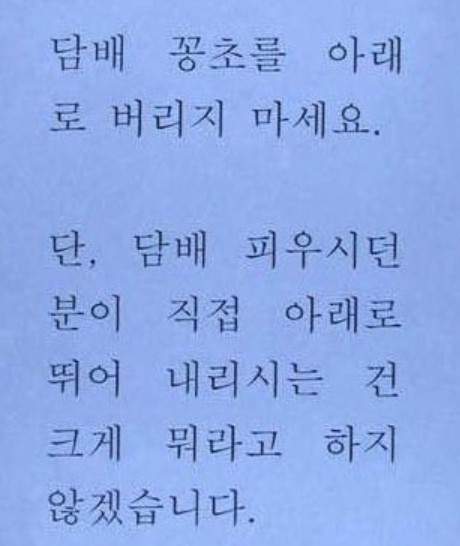 담배 꽁초를 아래
로 버리지 마세요.
단, 담배 피우시던
분이 직접 아래로
뛰어 내리시는 건
크게 뭐라고 하지
않겠습니다.